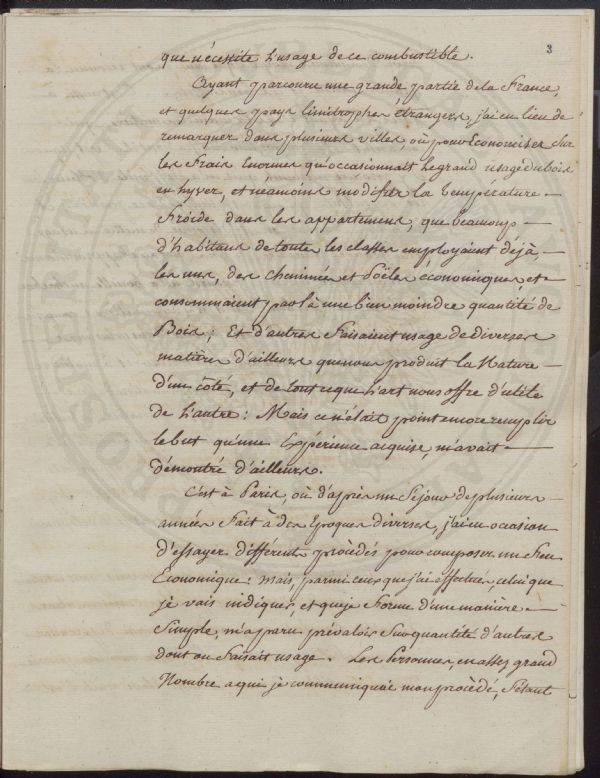 3
que nécessite l'usage de ce combustible.
Ayant parcouru une grande partie de la France,
et quelques pays limitrophes Etrangers, j'ai eu lieu de
remarquer dans plusieurs villes, où pour Economiser sur
les Frais Enormes qu'occasionnait le grand usage du bois
en hyver, et néamoins modifier la température —
Froide dans les appartemens, que beaucoup —
d'habitans de toutes les classes employaient déjà, —
les uns, des cheminées et Poëles économiques, et —
consommaient par là une bien moindre quantité de
Bois; Et d'autres Faisaient usage de diverses
matières d'ailleurs que nous produit la Nature —
d'un côté, et de tout ce que l'art nous offre d'utile
de l'autre: Mais ce n'était point encore remplir
le but qu'une Expérience acquise, m'avait —
démontré d'ailleurs.
C'est à Paris, où d'après un Séjour de plusieurs —
années Fait à des Epoques diverses, j'ai eu occasion
d'essayer différents procédés pour composer un Feu
Economique: mais, parmi ceux que j'ai effectués, celui que
je vais indiquer, et que je Forme d'une manière —
Simple, m'a paru prévaloir Sur quantité d'autres
dont on Faisait usage. Les Personnes, en assez grand
Nombre a qui je communiquai mon procédé, S'étant